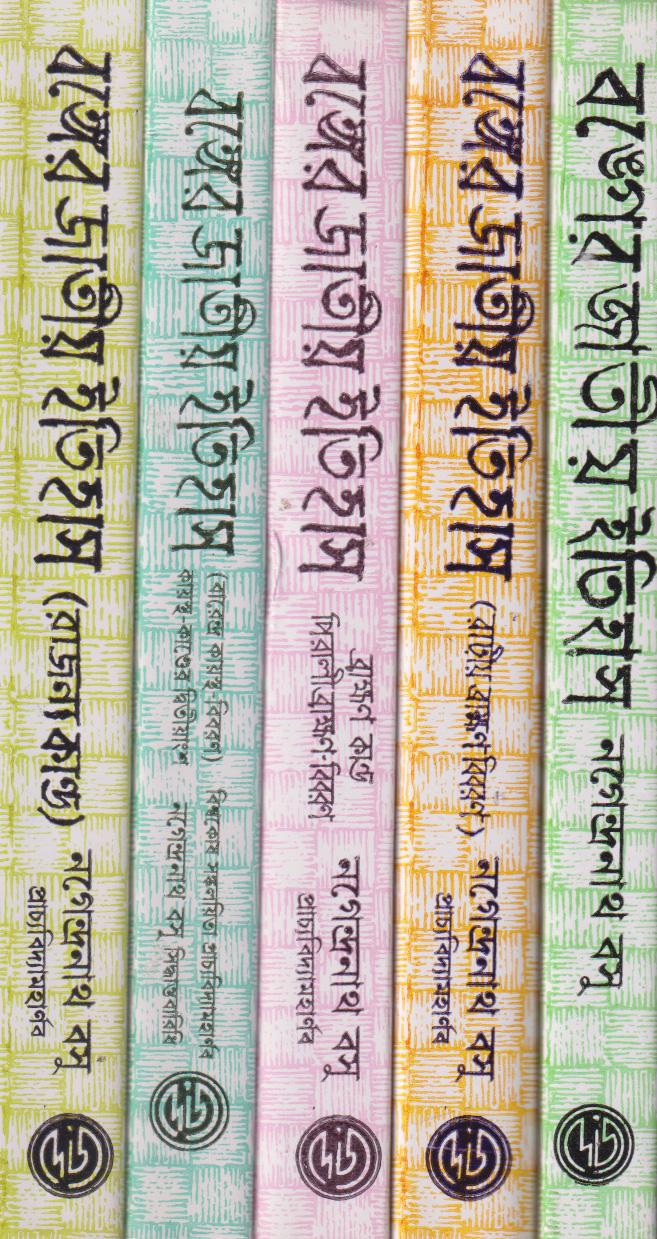 বঙ্গের জাতীয় ইতিহাস
(রাজন্য কান্ড)
নগেন্দ্রনাথ বসু
প্রাচ্যবিদ্যামহার্ণব
বঙ্গের জাতীয় ইতিহাস
(বারেন্দ্র কায়স্থ-বিবরণ)
কায়স্থ-কাণ্ডের দ্বিতীয়াংশ
বিশ্বকোষ সঙ্কলয়িতা প্রাচ্যবিদ্যামহার্ণব
নগেন্দ্রনাথ বসু সিদ্ধান্তবারিধি
বঙ্গের জাতীয় ইতিহাস
ব্রাহ্মণ কান্ড
পিরালী ব্রাহ্মণ-বিবরণ
নগেন্দ্রনাথ বসু
প্রাচ্যবিদ্যামহার্ণব
বঙ্গের জাতীয় ইতিহাস
(রাঢ়ীয় ব্রাহ্মণ বিবরণ)
নগেন্দ্রনাথ বসু
প্রাচ্যবিদ্যামহার্ণব
বঙ্গের জাতীয় ইতিহাস
নগেন্দ্রনাথ বসু